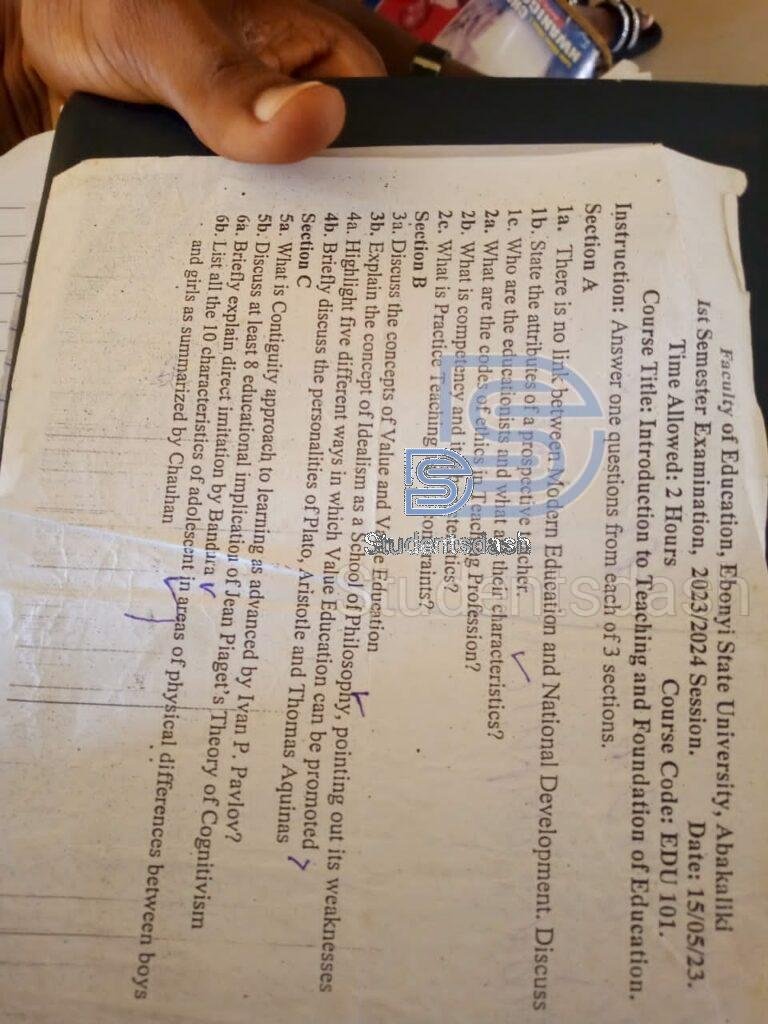 Faculty of Education, Ebonyi State University, Abakaliki
1st Semester Examination, 2023/2024 Session. Date: 15/05/23.
Time Allowed: 2 Hours Course Code: EDU 101.
Course Title: Introduction to Teaching and Foundation of Education.
Instruction: Answer one questions from each of 3 sections.
Section A
1a. There is no link between Modern Education and National Development. Discuss
1b. State the attributes of a prospective teacher.
1c. Who are the educationists and what are their characteristics?
2a. What are the codes of ethics in Teaching Profession?
2b. What is competency and its
2c. What is Practice Teaching
Section B
3a. Discuss the concepts of Value and Value Education
3b. Explain the concept of Idealism as a School of Philosophy, pointing out its weaknesses
4a. Highlight five different ways in which Value Education can be promoted
4b. Briefly discuss the personalities of Plato, Aristotle and Thomas Aquinas
Section C
5a. What is Contiguity approach to learning as advanced by Ivan P. Pavlov?
5b. Discuss at least 8 educational implication of Jean Piaget's Theory of Cognitivism
6a. Briefly explain direct imitation by Bandura
6b. List all the 10 characteristics of adolescent in areas of physical differences between boys
and girls as summarized by Chauhan
Studentsdash
Studentsdash